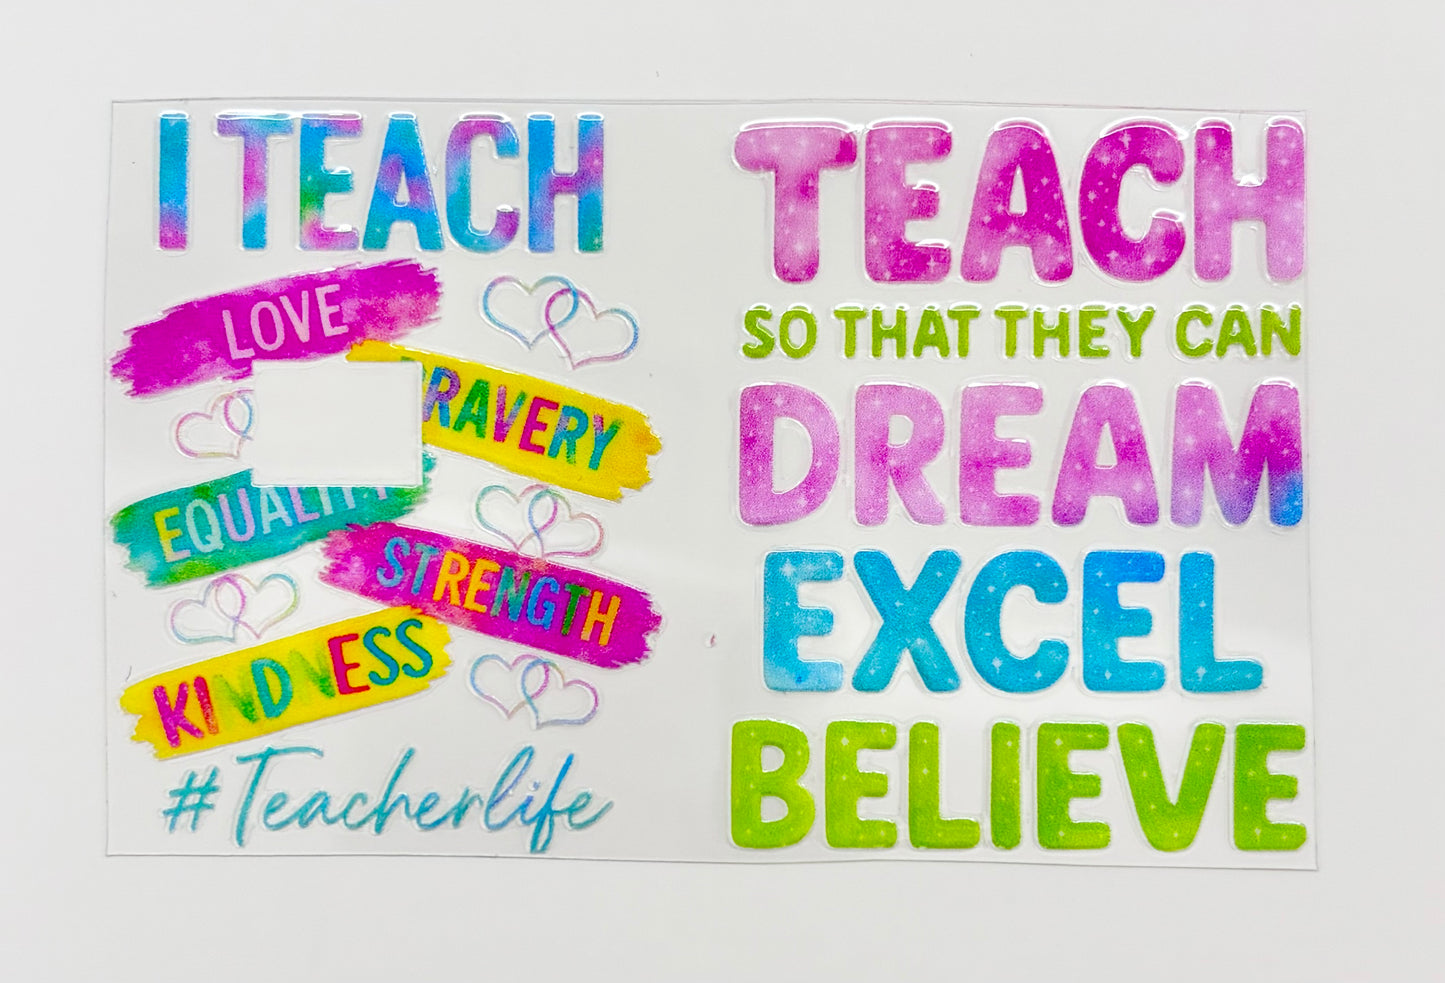 I TEACH
LOVE
BRAVERY
EQUALITY
STRENGTH
KINDNESS
#Teacherlife
TEACH
SO THAT THEY CAN
DREAM
EXCEL
BELIEVE